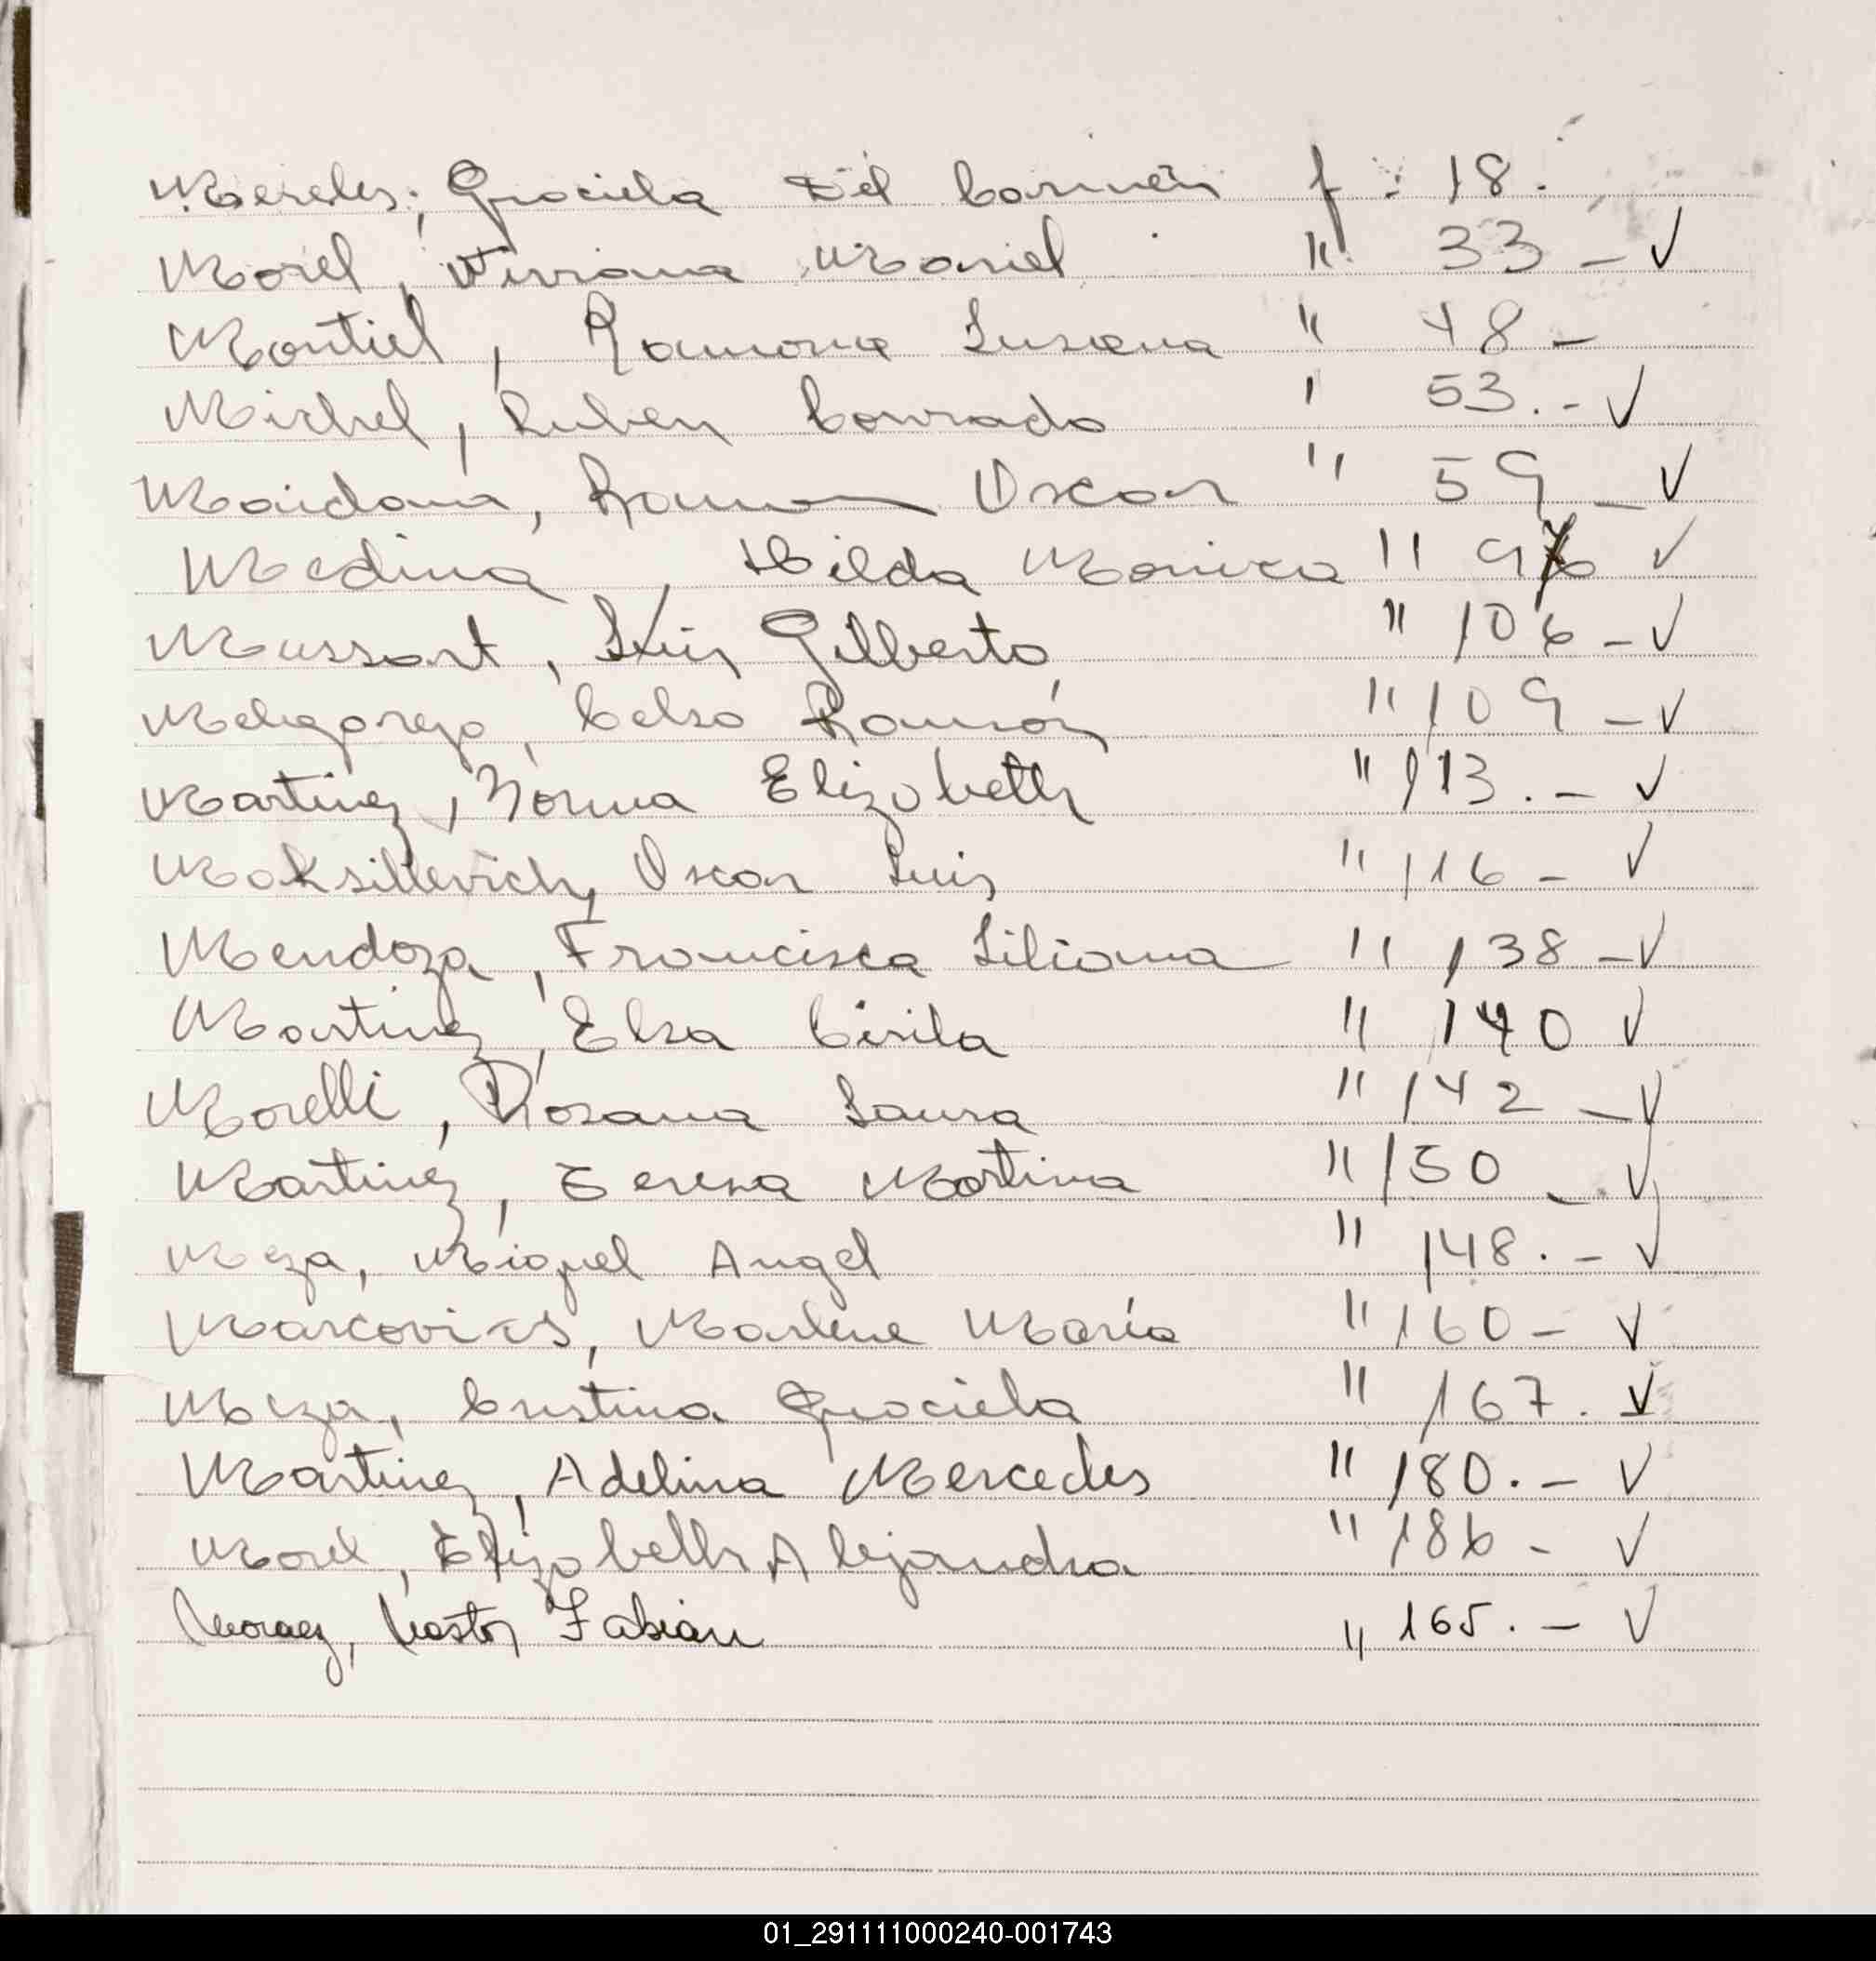 Mereles, Graciela Del Carmen f : 18.
Morel, Viviana Mariel " 33 - ✓
Montiel, Ramona Susana " 48 -
Michel, Ruben Conrado " 53.- ✓
Maidana, Ramon Oscar " 59 - ✓
Medina, Hilda Monica " 96 ✓
Mussart, Luis Gilberto " 106 - ✓
Melgarejo, Celso Ramón " 109 - ✓
Martinez, Norma Elizabeth " 113.- ✓
Maksillevich, Oscar Luis " 116 - ✓
Mendoza, Francisca Liliana " 138 - ✓
Martinez, Elsa Cirila " 140 ✓
Morelli, Rosana Laura " 142 - ✓
Martinez, Teresa Martina " 150 - ✓
Meza, Miguel Angel " 148.- ✓
Marcovics, Marlene María " 160 - ✓
Meza, Cristina Graciela " 167. ✓
Martinez, Adelina Mercedes " 180.- ✓
Morel, Elizabeth Alejandra " 186 - ✓
Fabian " 165.- ✓
01_291111000240-001743